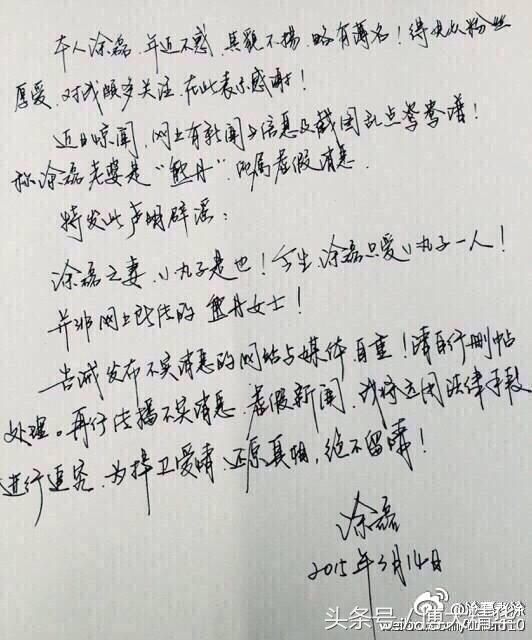 本人涂磊，年近不惑，其貌不扬，略有薄名！得大众粉丝
厚爱，对我颇多关注，在此表示感谢！
近日惊闻，网上有新闻与信息及截图乱点鸳鸯谱！
称涂磊老婆是“熊丹”，此属虚假消息。
特发此声明辟谣：
涂磊之妻，小丸子是也！今生，涂磊只爱小丸子一人！
并非网上所传的熊丹女士！
告诫发布不实消息的网站与媒体自重！请自行删帖
处理。再行传播不实消息、虚假新闻，我将运用法律手段
进行追究，为捍卫爱情，还原真相，绝不留情！
涂磊
2015年3月14日
头条号